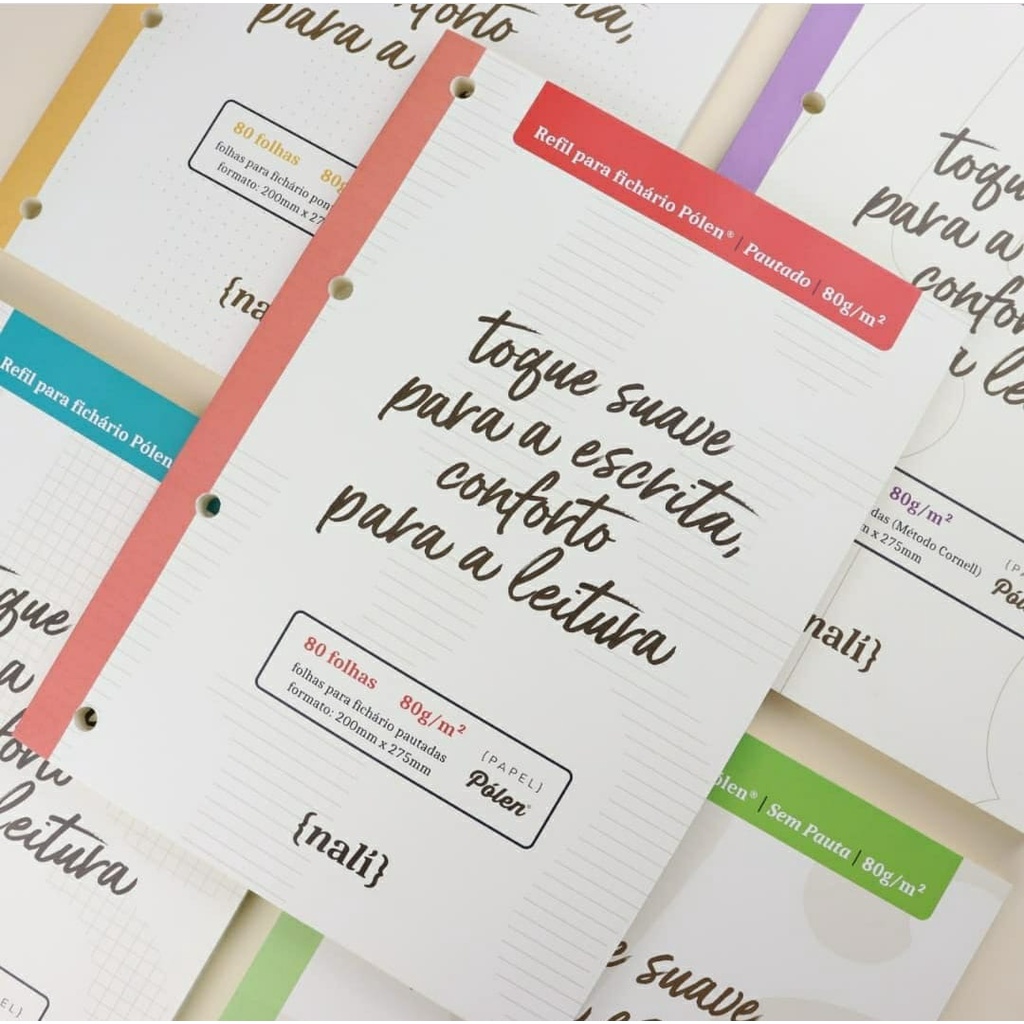 para a
conforto
80 folhas
folhas para fichário
formato: 200mm x
Refil para fichário Pólen® | Pautado | 80g/m²
toque suave
para a escrita,
conforto
para a leitura
80 folhas 80g/m²
folhas para fichário pautadas
formato: 200mm x 275mm
{PAPEL}
Pólen®
{nalí}
para a
80g/m²
(Método Cornell)
x 275mm
nalí}
Refil para fichário Pólen
a
leitura
| Sem Pauta | 80g/m²
suave